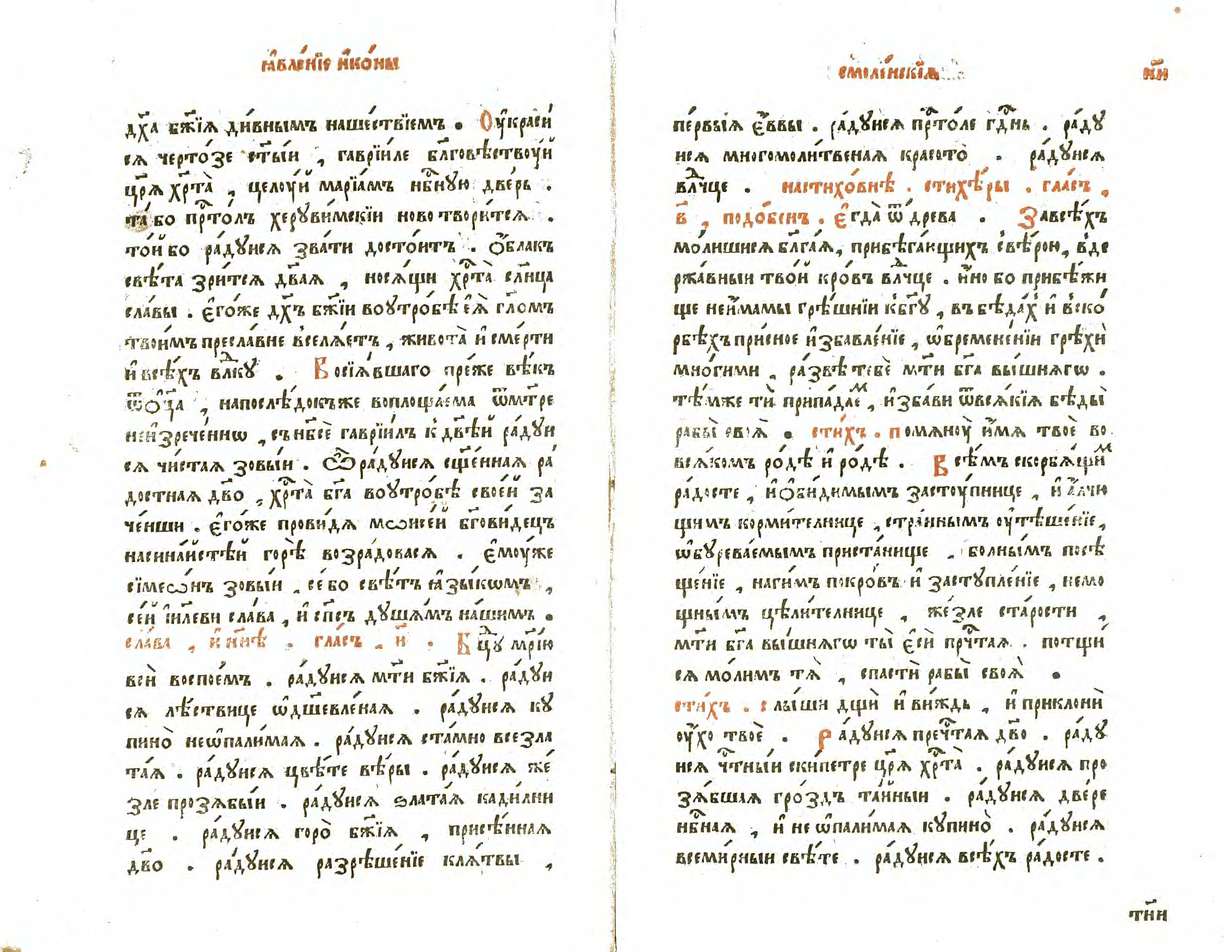 ꙗ҆вле́нїе и҆ко́ны
дх҃а бж҃їѧ ди́внымъ наше́ствїемъ . Оу҆краси́
сѧ черто́зе ст҃ы́и , гаврїи́ле бл҃говѣ́ствꙋй
цр҃ѧ̀ хрⷭ҇та̀ , целꙋ́й марїа́мъ нбⷭ҇нꙋю две́рь .
та́ бо прⷭ҇то́лъ херꙋви́мскїи ново твори́тсѧ .
то́й бо ра́дꙋисѧ зва́ти досто́итъ . Ѻ҆́блакъ
свѣ́та зри́тсѧ дв҃аѧ , носѧ́щи хрⷭ҇та̀ сл҃нца
сла́вы . є҆го́же дх҃ъ бж҃їи воꙋтро́бѣ є҆ѧ̀ гл҃омъ
твои́мъ пресла́вне вселѧ́етъ , живота̀ и҆ сме́рти
и҆ всѣ́хъ влⷣкꙋ . Восїѧ́вшаго пре́же вѣ́къ
ѿ ѻ҆ц҃а̀ , напослѣ́докъ же воплоща́ема ѿ мт҃ре
неизрече́ннѡ , съ нб҃сѐ гаврїи́лъ к̾ дв҃ѣй ра́дꙋи
сѧ чи́стаѧ зовы́и . Ѽ ра́дꙋисѧ сщ҃е́ннаѧ ра́
достнаѧ дв҃о , хрⷭ҇та̀ бг҃а воꙋтро́бѣ свое́й за
че́нши . є҆го́же прови́дѧ мѡисе́й бг҃ови́децъ
насина́йстѣй горѣ̀ возра́довасѧ . є҆мꙋ́же
сїмеѡ́нъ зовы́и , се́ бо свѣ́тъ ꙗ҆зы́кѡмъ ,
се́й і҆и҃леви сла́ва , и҆ сп҃съ дꙋша́мъ на́шимъ .
сла́ва , и҆ ны́нѣ . гла́съ , и҃ . Бцⷣꙋ мр҃і́ю
всѝ воспое́мъ . ра́дꙋисѧ мт҃и бж҃їѧ . ра́дꙋи
сѧ лѣ́ствице ѡ҆дш҃евле́наѧ . ра́дꙋисѧ кꙋ
пино̀ неѡпали́маѧ . ра́дꙋисѧ ста́мно всезла
та́ѧ . ра́дꙋисѧ цвѣ́те вѣ́ры . ра́дꙋисѧ же́
зле прозѧ́быи . ра́дꙋисѧ ѕлата́ѧ кади́лни
це . ра́дꙋисѧ горо̀ бж҃їѧ , присѣ́ннаѧ
дв҃о . ра́дꙋисѧ разрѣше́нїе клѧ́твы ,
смоле́нскїѧ
к҃и
пе́рвыѧ є҆́ввы . ра́дꙋисѧ прⷭ҇то́ле гдⷭ҇нь . ра́дꙋ
исѧ многомоли́твенаѧ красото̀ . ра́дꙋисѧ
влⷣчце . настихо́внѣ . стихе́ры . гла́съ ,
в҃ , подо́бенъ . є҆гда̀ ѿ дре́ва . За всѣ́хъ
мо́лишисѧ бл҃га́ѧ , прибѣга́ющихъ с̾вѣ́рою , в̾де
ржа́вныи тво́й кро́въ влⷣчце . и҆́но бо прибѣ́жи
ще не и҆́мамы грѣ́шнїи к̾ бг҃ꙋ , въ бѣда́х̾ и҆ вско́
рбѣхъ при́сное и҆збавле́нїе , ѡ҆бремене́нїи грѣхѝ
мно́гими , ра́звѣ тебѐ мт҃и бг҃а вы́шнѧгѡ .
тѣ́мже тѝ припа́даеⷨ , и҆зба́ви ѿ всѧ́кїѧ бѣды̀
рабы̀ своѧ̀ . сти́хъ . помѧнꙋ̀ и҆́мѧ твоѐ во
всѧ́комъ ро́дѣ и҆ ро́дѣ . Всѣ́мъ скорбѧ́щиⷨ
ра́досте , и҆ ѻ҆би́димымъ застꙋ́пнице , и҆ а҆́лчю
щимъ корми́телнице , стра́ннымъ оу҆тѣше́нїе ,
ѡ҆бꙋрева́емымъ приста́нище , болны́мъ посѣ
ще́нїе , наги́мъ покро́въ и҆ застꙋпле́нїе , немо
щны́мъ цѣли́телнице , же́зле ста́рости ,
мт҃и бг҃а вы́шнѧгѡ ты̀ є҆сѝ прⷱ҇таѧ . потщи́
сѧ мо́лимъ тѧ̀ , спастѝ рабы̀ своѧ̀ .
сти́хъ . слы́ши дщѝ и҆ ви́ждь , и҆ приклонѝ
оу҆́хо твоѐ . Ра́дꙋисѧ преⷱ҇таѧ дв҃о . ра́дꙋ
исѧ чⷭ҇тны́и ски́петре цр҃ѧ̀ хрⷭ҇та̀ . ра́дꙋисѧ про
зѧ́бшаѧ гро́здъ та́йныи . ра́дꙋисѧ две́ре
нбⷭ҇наѧ , и҆ не ѡ҆пали́маѧ кꙋпино̀ . ра́дꙋисѧ
всеми́рныи свѣ́те . ра́дꙋисѧ всѣ́хъ ра́досте .